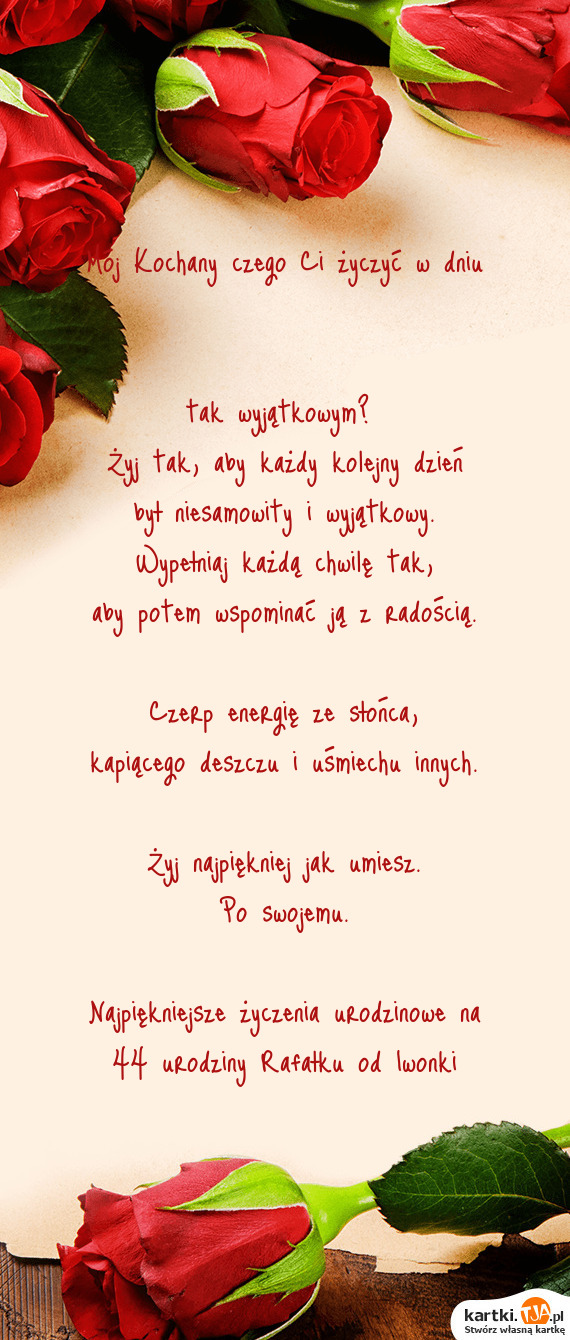 Mój Kochany czego Ci życzyć w dniu
tak wyjątkowym?
Żyj tak, aby każdy kolejny dzień
był niesamowity i wyjątkowy.
Wypełniaj każdą chwilę tak,
aby potem wspominać ją z radością.
Czerp energię ze słońca,
kapiącego deszczu i uśmiechu innych.
Żyj najpiękniej jak umiesz.
Po swojemu.
Najpiękniejsze życzenia urodzinowe na
44 urodziny Rafałku od Iwonki
kartki.TJA.pl
Stwórz własną kartkę